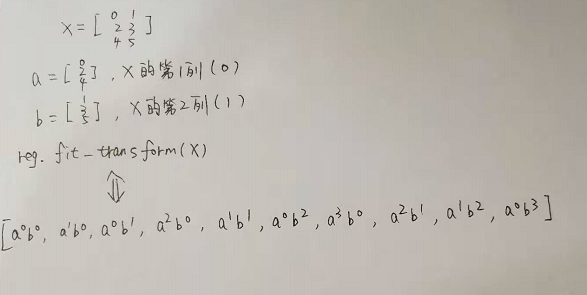 X = [ 0 1
2 3
4 5 ]
a = [ 0 2 4 ] , X 的第1列 (0)
b = [ 1 3 5 ] , X 的第2列 (1)
reg. fit_transform(X)
⇕
[a⁰b⁰, a¹b⁰, a⁰b¹, a²b⁰, a¹b¹, a⁰b², a³b⁰, a²b¹, a¹b², a⁰b³]